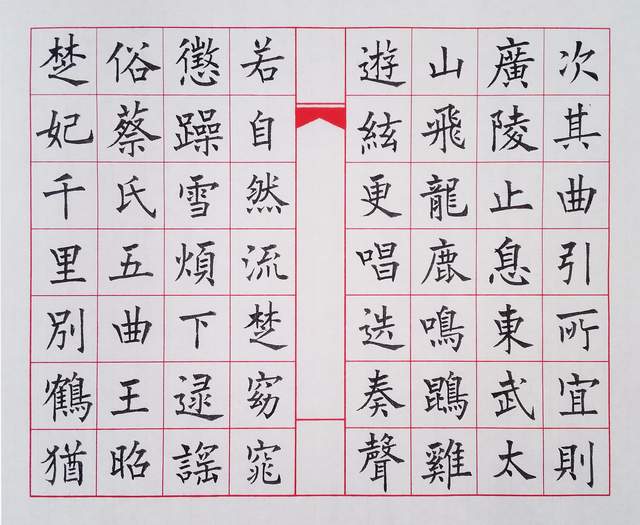 次其曲引所宜則
廣陵止息東武太
山飛龍鹿鳴鵾雞
遊絃更唱迭奏聲
若自然流楚窈窕
懲躁雪煩下逮謠
俗蔡氏五曲王昭
楚妃千里別鶴猶